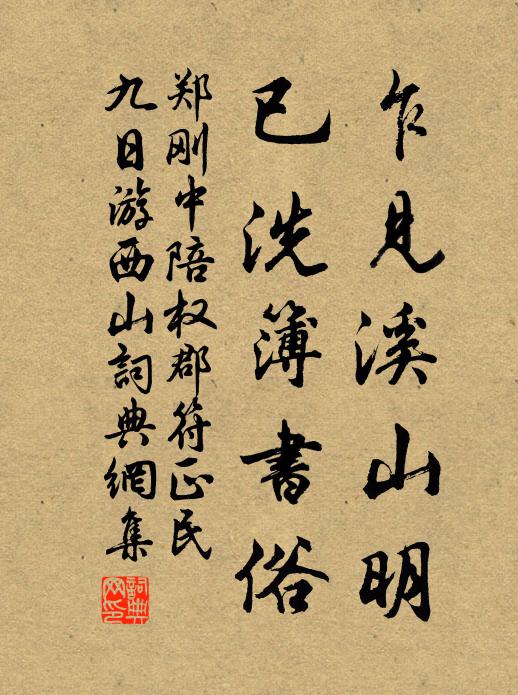 乍见溪山明
已洗簿書俗
郑刚中陪权郡符正民
九日游西山詞典網集
詞典
网印